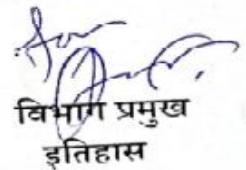 विभाग प्रमुख
इतिहास